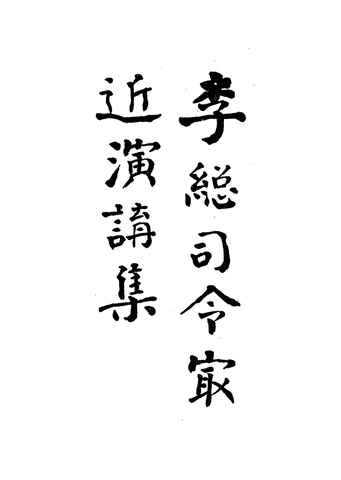 李總司令冣
近演講集